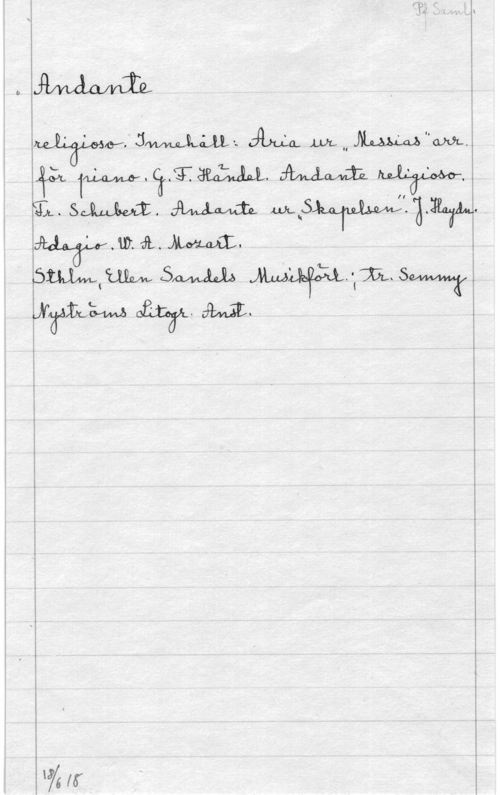 Pf Saml.
Andante
religioso. Innehåll: Aria ur „Messias" arr.
för piano. G. F. Händel. Andante religioso.
Fr. Schubert. Andante ur „Skapelsen". J. Haydn.
Adagio. W. A. Mozart.
Sthlm, Ellen Sandels Musikförl.; tr. Semmy
Nyströms Litogr. Anst.
18/6 15